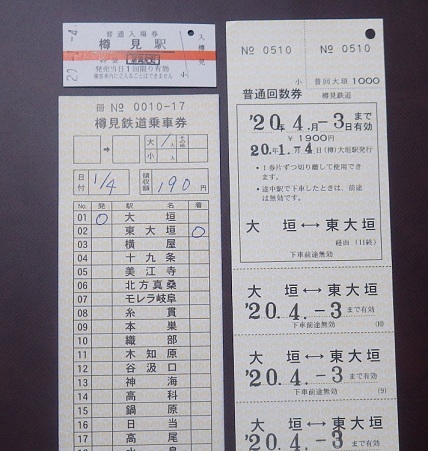 29.-1.-4
普通入場券
樽見駅
発売当日1回限り有効
旅客車内に立ち入ることはできません
小
入
樽見
冊 № 0010-17
樽見鉄道乗車券
→
大 1人
小 人
日付 1/4
領収額 190円
No. 発 駅名 着
01 大垣
02 東大垣
03 横屋
04 十九条
05 美江寺
06 北方真桑
07 モレラ岐阜
08 糸貫
09 本巣
10 織部
11 木知原
12 谷汲口
13 神海
14 高科
15 鍋原
16 日当
17 高尾
№ 0510 № 0510
小 普回大垣 1000
普通回数券 樽見鉄道
'20年4.月-3日有効まで
¥1900円
20.年1.月4日(樽)大垣駅発行
・1券片ずつ切り離して使用できます。
・途中駅で下車したときは、前途は無効です。
大垣↔東大垣
経由(11終)
下車前途無効
大垣↔東大垣
'20.4.-3まで有効
下車前途無効 (10)
大垣↔東大垣
'20.4.-3まで有効
下車前途無効 (9)
大垣↔東大垣
'20.4.-3まで有効